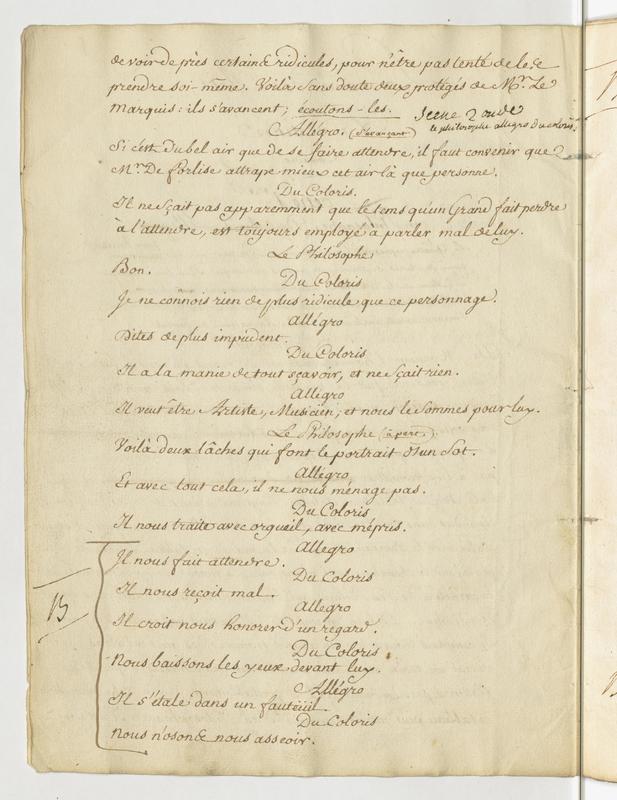 de voir de près certains ridicules, pour n'être pas tenté de les
prendre soi-même. Voilà sans doute deux protégés de Mr. Le
Marquis: ils s'avancent; écoutons-les. Scene 2
le philosophe allegro du coloris
Allégro. (s'avançant)
Si c'est du bel air que de se faire attendre, il faut convenir que
Mr. De forlise attrape mieux cet air là que personne.
Du Coloris.
Il ne sçait pas apparemment que le tems qu'un Grand fait perdre
à l'attendre, est toûjours employé à parler mal de luy.
Le Philosophe
Bon.
Du Coloris
Je ne connois rien de plus ridicule que ce personnage.
Allégro
Dites de plus impudent.
Du Coloris
Il a la manie de tout sçavoir, et ne sçait rien.
Allegro
Il veut être Artiste, Musicien; et nous le sommes pour luy.
Le Philosophe (à part)
Voilà deux lâches qui font le portrait d'un Sot.
Allégro
Et avec tout cela, il ne nous ménage pas.
Du Coloris
Il nous traite avec orgueil, avec mépris.
Allegro
Il nous fait attendre.
Du Coloris
Il nous reçoit mal.
Allegro
B
Il croit nous honorer d'un regard.
Du Coloris
Nous baissons les yeux devant luy.
Allégro
Il s'étale dans un fauteüil.
Du Coloris
Nous n'osons nous asseoir.